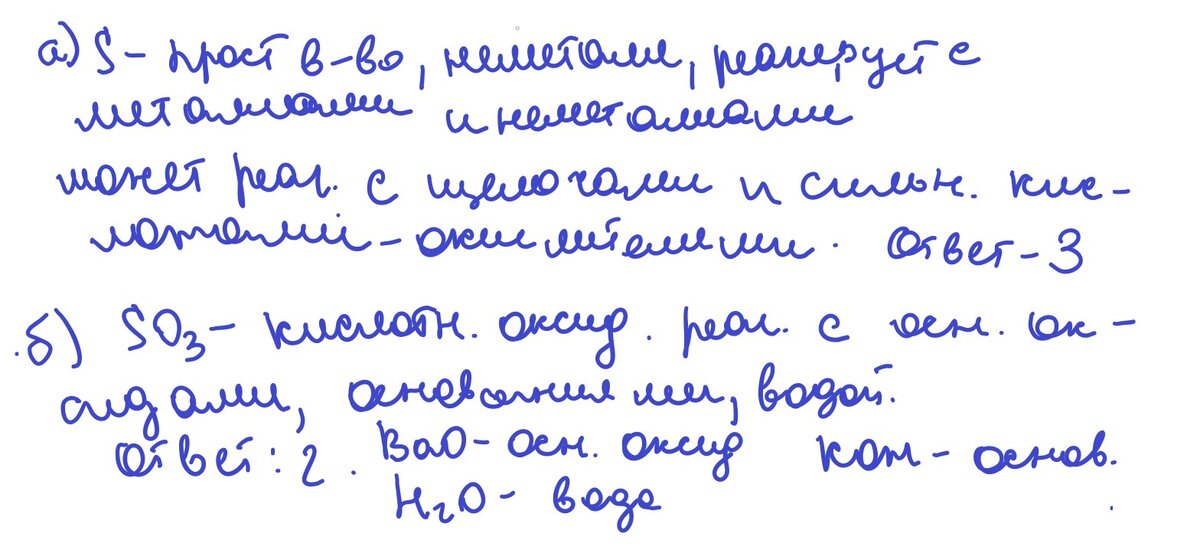 а) S – прост в-во, неметалл, реагирует с
металлами и неметаллами
может реаг. с щелочами и сильн. кис-
лотами – окислителями. Ответ – 3
б) SO₃ – кислотн. оксид. реаг. с осн. ок-
сидами, основаниями, водой.
Ответ: 2. BaO – осн. оксид KOH – основ.
H₂O – вода